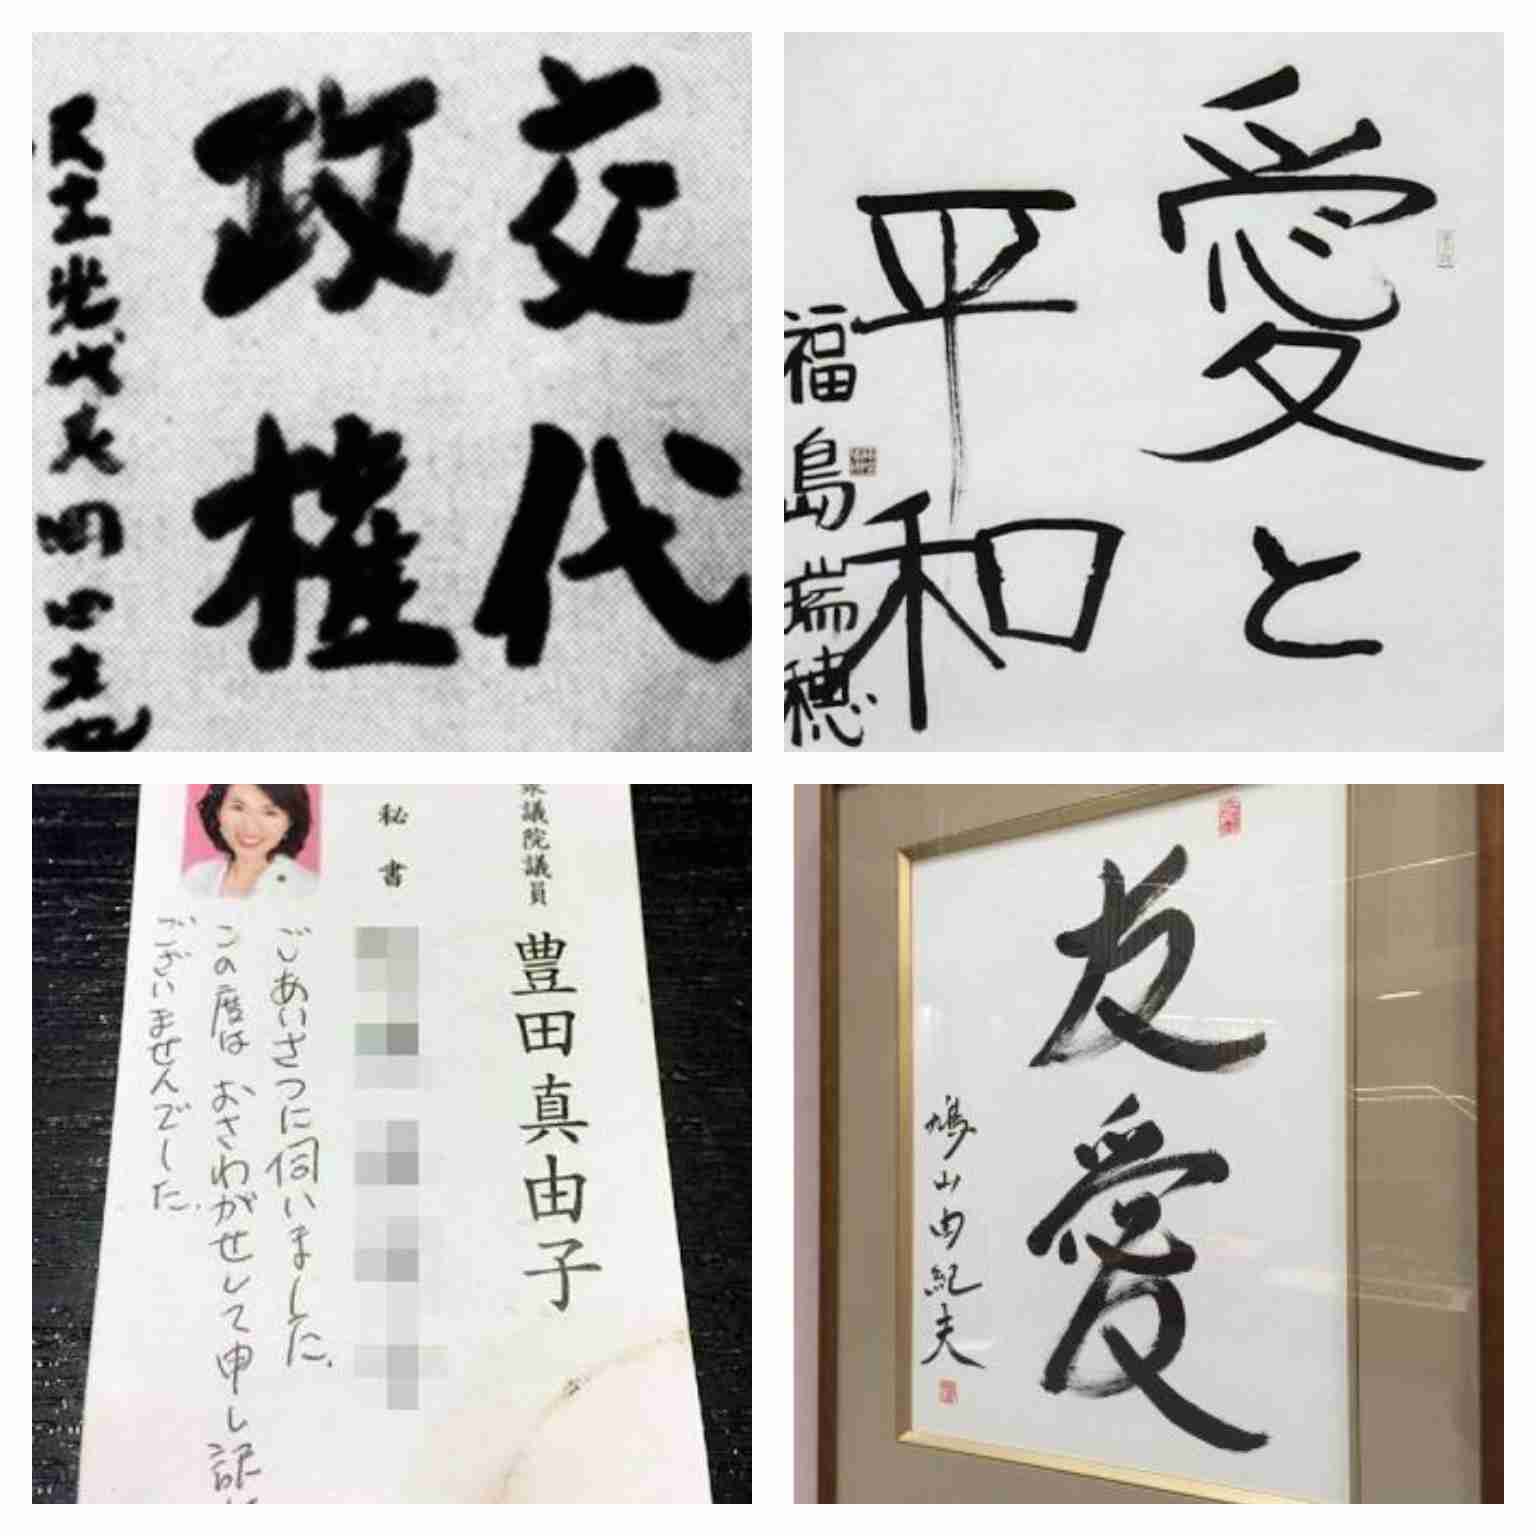 交代
政権
民主党代表岡田克也
愛と
平和
福島瑞穂
衆議院議員 豊田真由子
秘書
ごあいさつに伺いました。
この度は おさわがせして申し訳
ございませんでした。
友愛
鳩山由紀夫